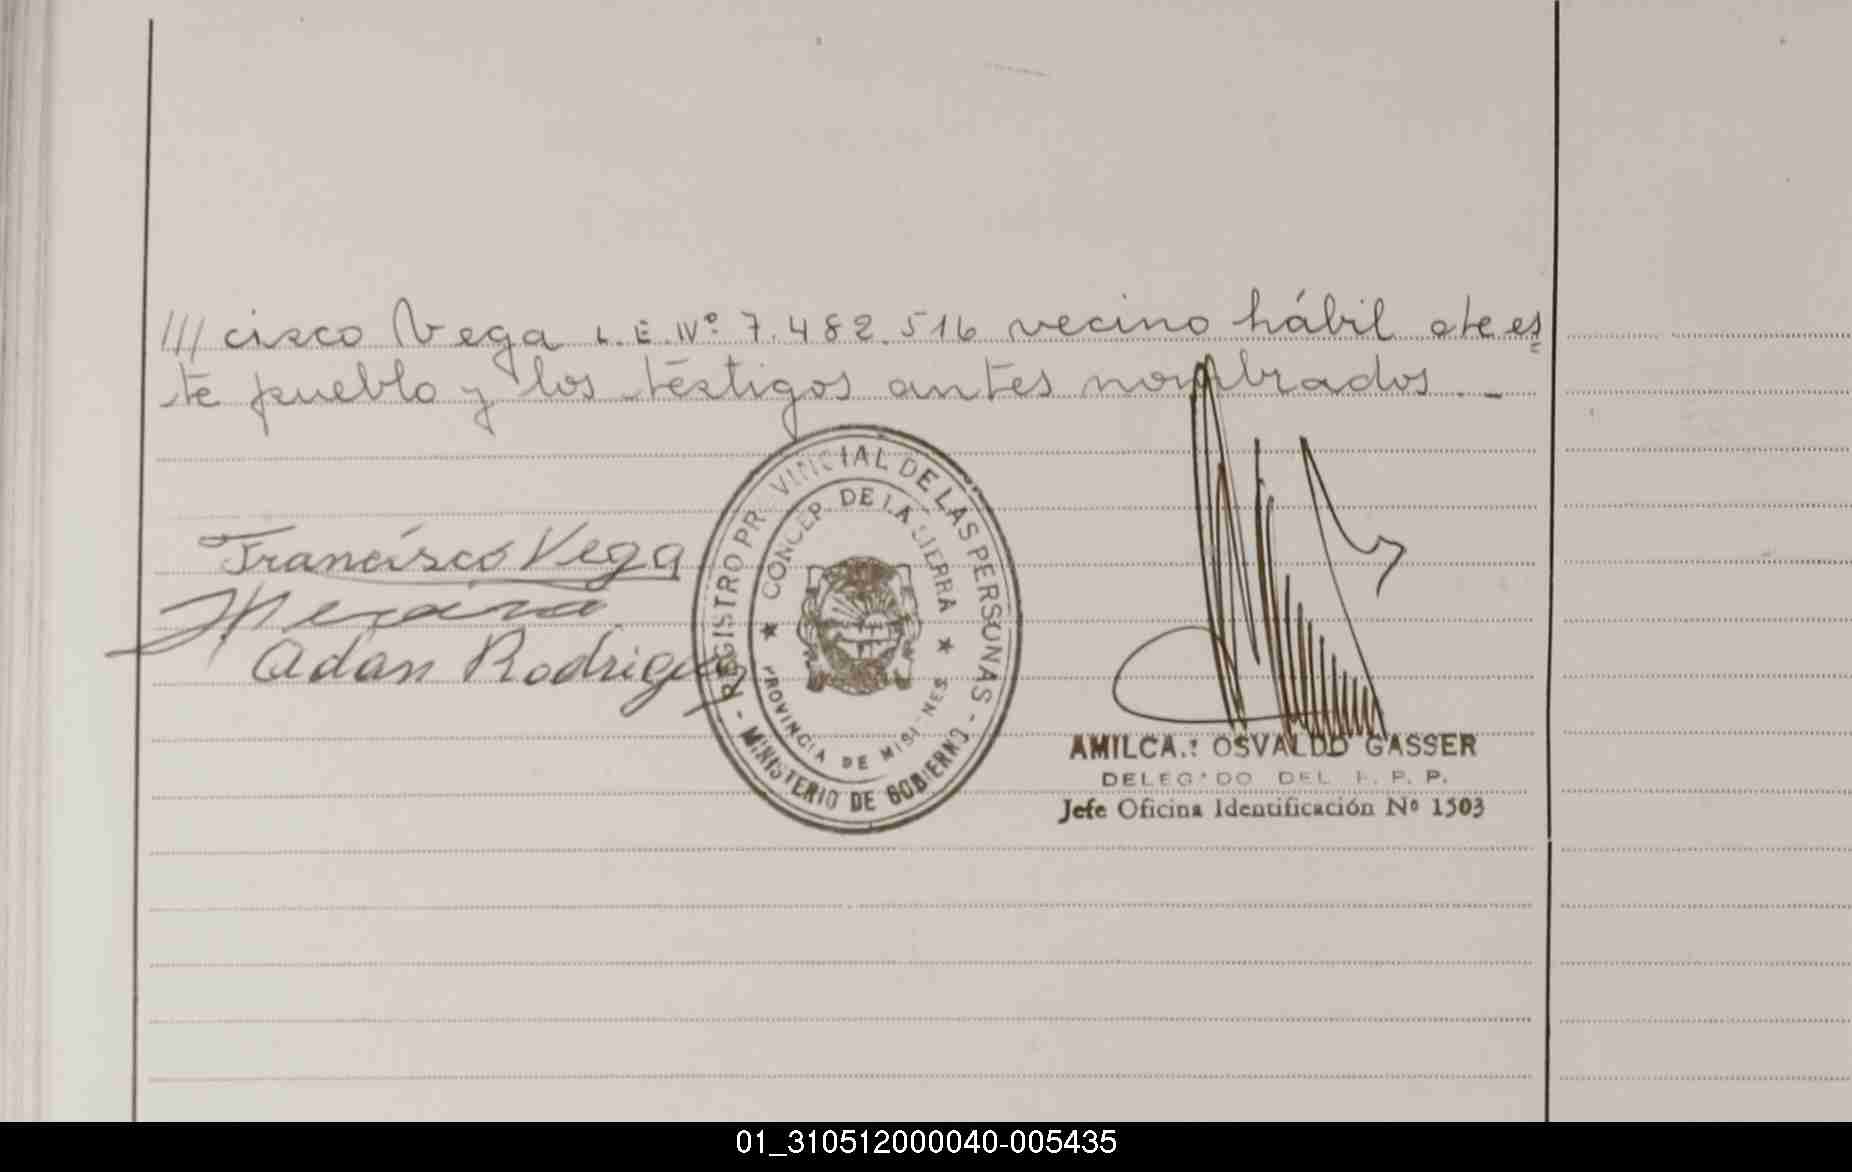 /// cisco Vega L.E.Nº 7.482.516 vecino hábil de es
te pueblo y los téstigos antes nombrados. _
Francisco Vega
Adan Rodriguez
REGISTRO PROVINCIAL DE LAS PERSONAS - MINISTERIO DE GOBIERNO -
★ CONCEP. DE LA SIERRA ★ PROVINCIA DE MISIONES
AMILCAR OSVALDO GASSER
DELEGADO DEL R. P. P.
Jefe Oficina Identificación Nº 1503
01_310512000040-005435